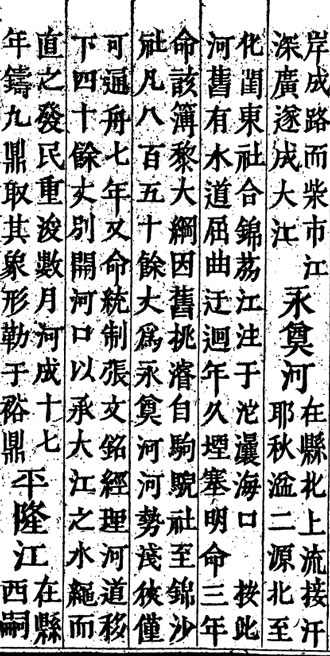 岸成路而柴市江
深廣遂成大江
永奠河
在縣北上流接汗
耶秋湓二源北至
化閏東社合錦荔江注于沱灢海口 按此
河舊有水道屈曲迂迴年久堙塞明命三年
命該簿黎大綱因舊挑濬自駒社至錦沙
社凡八百五十餘丈爲永奠河河勢淺狹僅
可通舟七年又命統制張文銘經理河道移
下四十餘丈別開河口以承大江之水繩而
直之發民重浚數月河成十七
年鑄九鼎取其象形勒于裕鼎
平隆江
在縣
西嗣